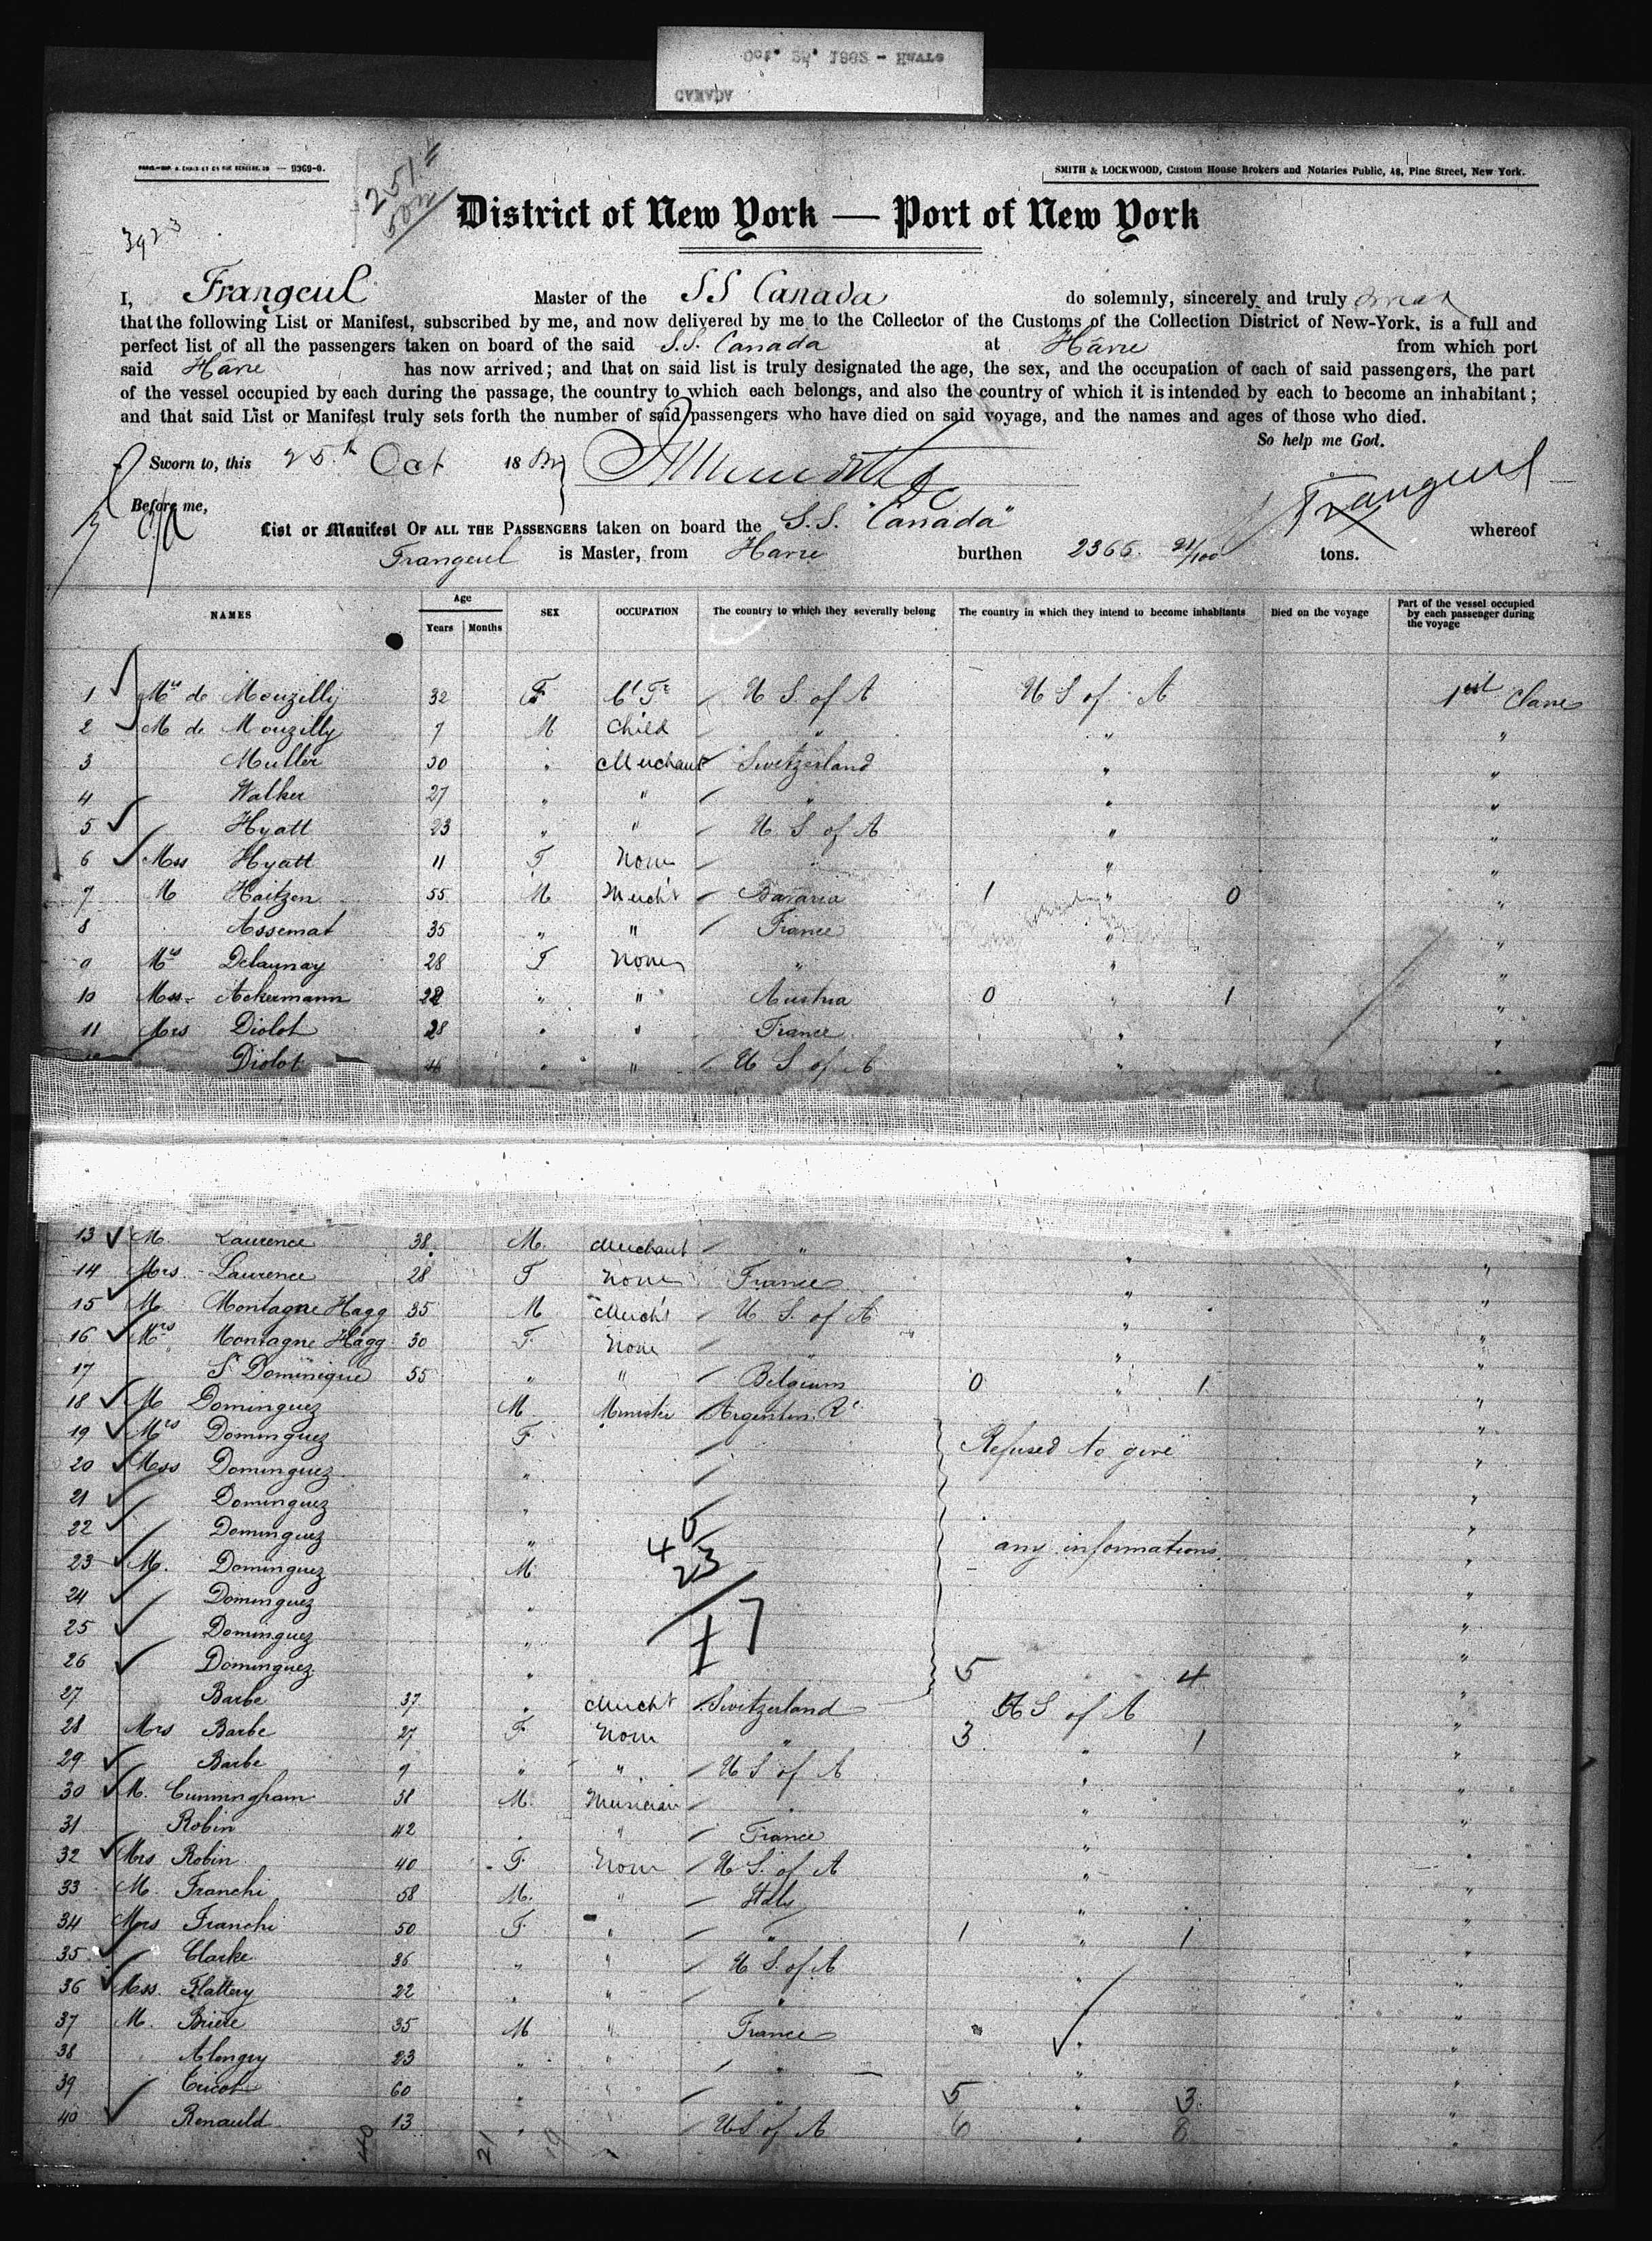 Oct. 25, 1882 - Havre
CANADA
— 9369-0.
SMITH & LOCKWOOD, Custom House Brokers and Notaries Public, 48, Pine Street, New York.
3923
District of New York — Port of New York
I, Frangeul Master of the SS Canada do solemnly, sincerely and truly
that the following List or Manifest, subscribed by me, and now delivered by me to the Collector of the Customs of the Collection District of New-York, is a full and
perfect list of all the passengers taken on board of the said S.S. Canada at Hâvre from which port
said Hâvre has now arrived; and that on said list is truly designated the age, the sex, and the occupation of each of said passengers, the part
of the vessel occupied by each during the passage, the country to which each belongs, and also the country of which it is intended by each to become an inhabitant;
and that said List or Manifest truly sets forth the number of said passengers who have died on said voyage, and the names and ages of those who died.
So help me God.
Sworn to, this 25th Oct 18
Frangeul
Before me,
List or Manifest OF ALL THE PASSENGERS taken on board the S.S. "Canada" whereof
Frangeul is Master, from Havre burthen 2365 91/100 tons.
NAMES Age Years Months SEX OCCUPATION The country to which they severally belong The country in which they intend to become inhabitants Died on the voyage Part of the vessel occupied by each passenger during the voyage
1 Mrs de Mouzilly 32 F U S of A U S of A 1st Classe
2 M de Mouzilly 7 M Child " " "
3 Muller 30 " Merchant Switzerland " "
4 Walker 27 " " " " "
5 Hyatt 23 " " U S of A " "
6 Mss Hyatt 11 F None " " "
7 M Haitzen 55 M Mercht Bavaria 1 " 0 "
8 Assemat 35 " " France " "
9 Mrs Delaunay 28 F None " " "
10 Mss Ackermann 22 " " Austria 0 " 1 "
11 Mrs Diolot 28 " " France " "
Diolot " " U S of A " "
13 M. Laurence 38 M. Merchant " " "
14 Mrs Laurence 28 F None France " "
15 M Montagne Hagg 35 M Mercht U S. of A " "
16 Mrs Montagne Hagg 30 F None " " "
17 St Dominique 55 " " Belgium 0 " 1 "
18 M Dominguez M Minister Argentin. Re "
19 Mrs Dominguez F Refused to give "
20 Mss Dominguez " "
21 Dominguez " "
22 Dominguez " any informations. "
23 M. Dominguez M "
24 Dominguez " "
25 Dominguez " "
26 Dominguez " 5 4 "
27 Barbe 37 " Mercht Switzerland U S of A "
28 Mrs Barbe 27 F None " 3 " 1 "
29 Barbe 9 " " U S of A " "
30 M. Cunningham 38 M. Musician " " "
31 Robin 42 " " France " "
32 Mrs Robin 40 F None U S. of A " "
33 M. Franchi 58 M. " Italy " "
34 Mrs Franchi 50 F " " 1 " 1 "
35 Clarke 36 " " U S. of A " "
36 Mss. Flattery 22 " " " " "
37 M. Brière 35 M " France " "
38 Alengry 23 " " " " "
39 Cricot 60 " " " 5 " 3 "
40 Renauld 13 " U S of A 6 " 8 "
4 5
23
17
40 21 19